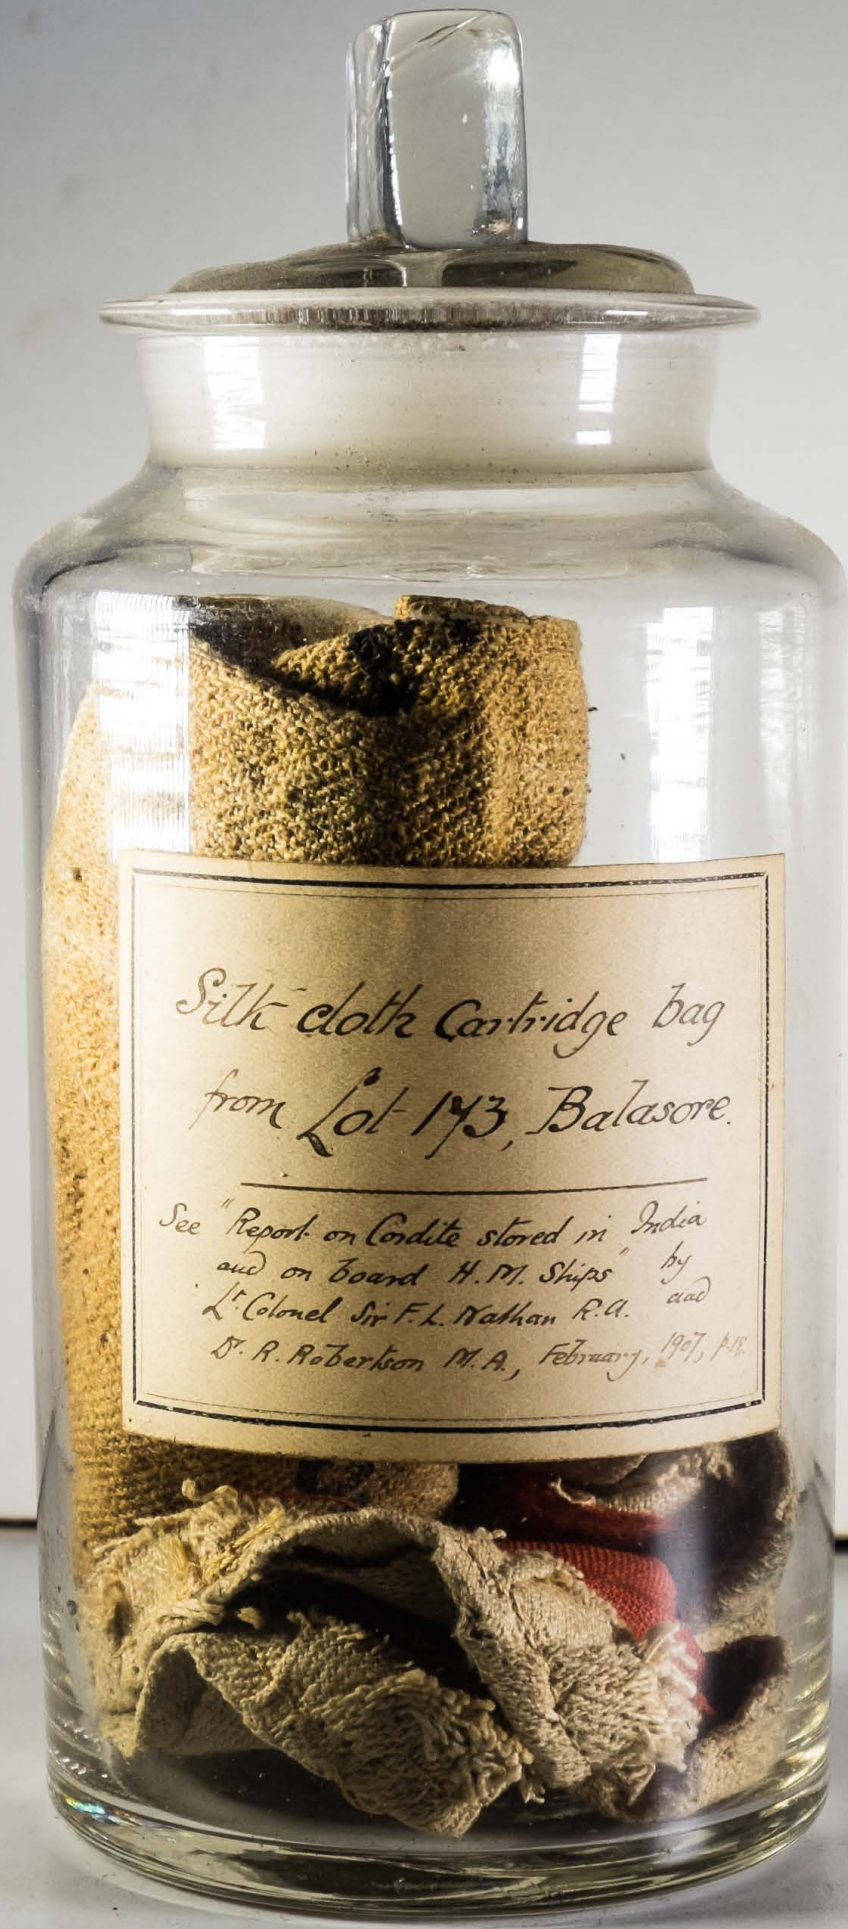 Silk cloth Cartridge bag
from Lot 173, Balasore.
See "Report on Cordite stored in India
and on board H.M. Ships" by
Lt. Colonel Sir F. L. Nathan R.A. and
Dr. R. Robertson M.A., February, 1907,